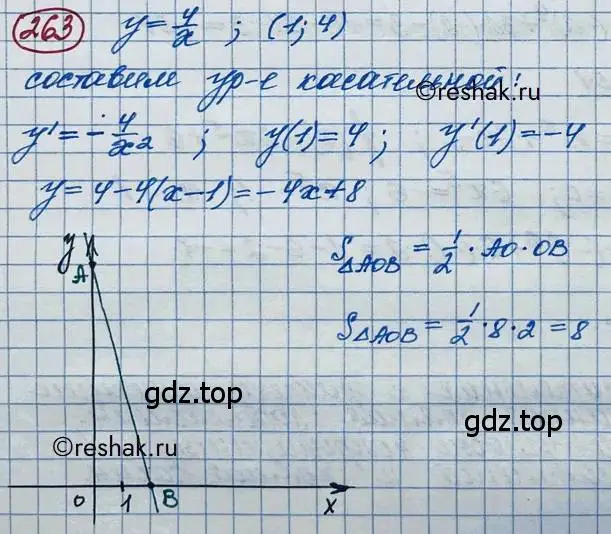 263 y = 4/x ; (1; 4)
составим ур-е касательной:
©reshak.ru
y' = - 4/x² ; y(1) = 4 ; y'(1) = -4
y = 4 - 4(x - 1) = -4x + 8
y
A
S△AOB = 1/2 · AO · OB
S△AOB = 1/2 · 8 · 2 = 8
gdz.top
gdz.top
©reshak.ru
©reshak.ru
0 1 B x